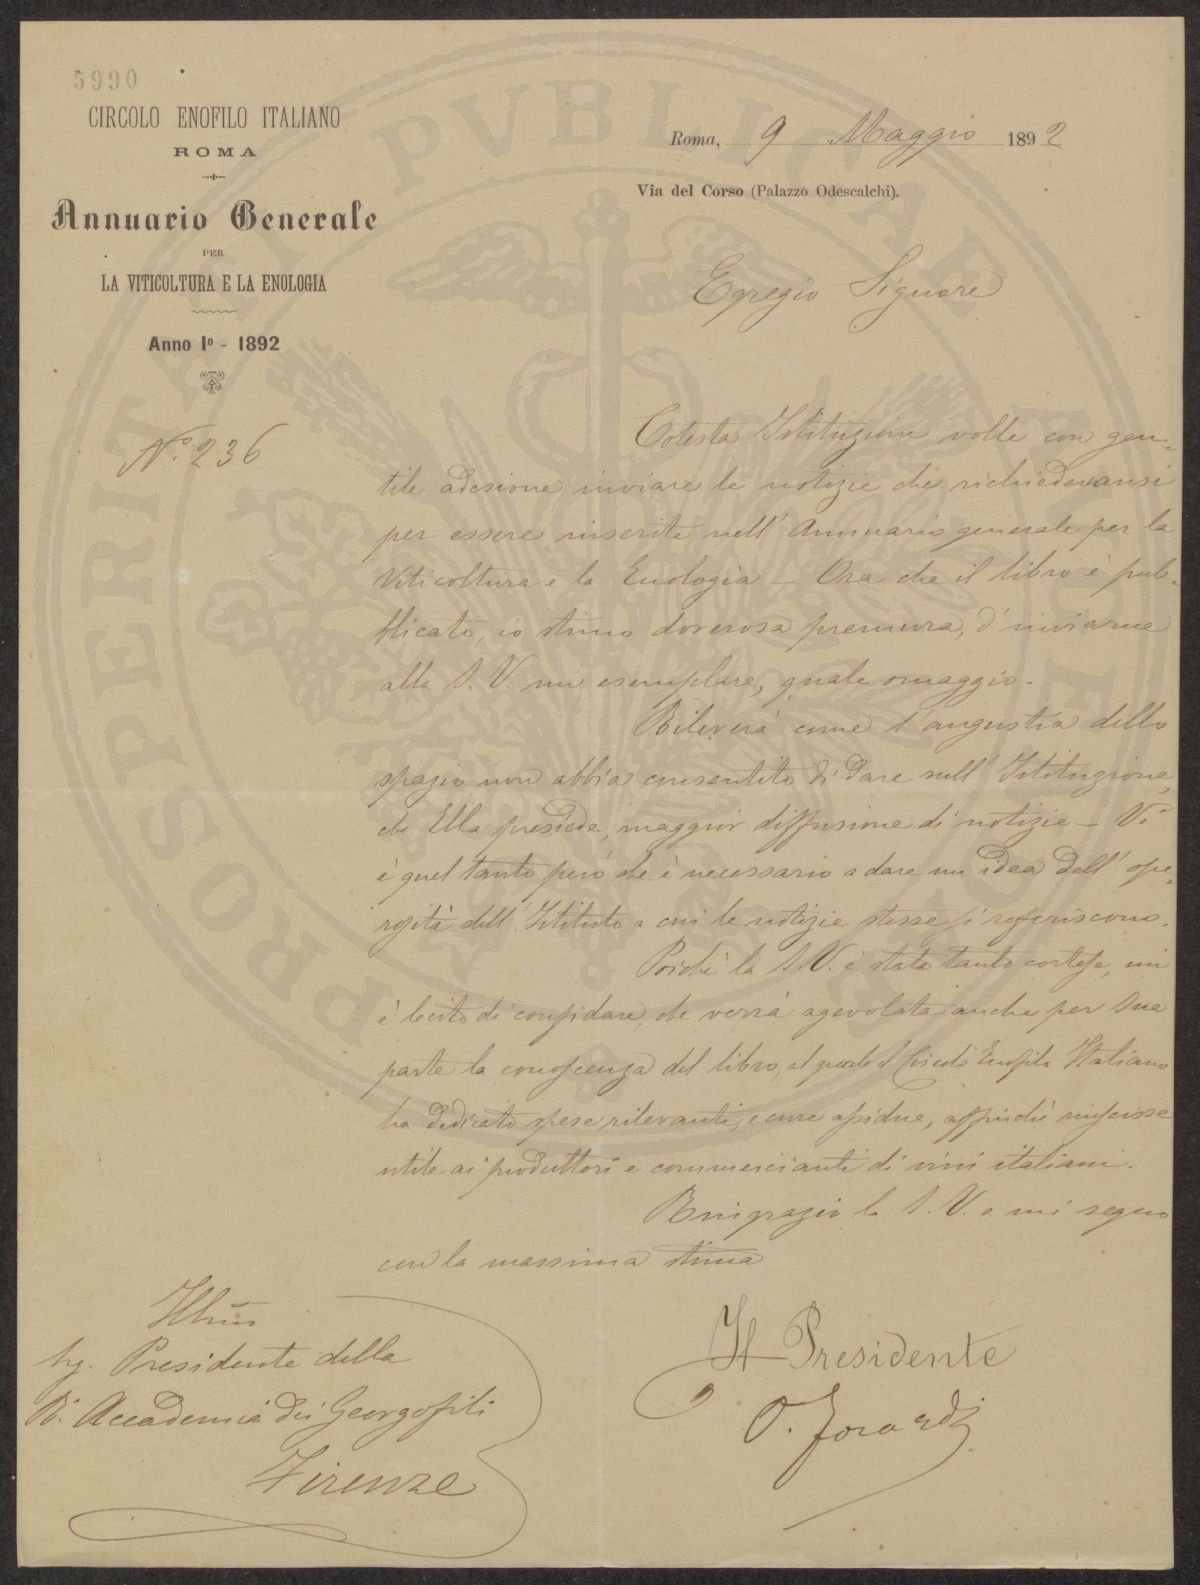 5990
CIRCOLO ENOFILO ITALIANO
ROMA
Annuario Generale
PER
LA VITICOLTURA E LA ENOLOGIA
Anno Iº - 1892
Nº. 236
Roma, 9 Maggio 1892
Via del Corso (Palazzo Odescalchi).
Egregio Signore
Cotesta Istituzione volle con gen-
tile adesione inviare le notizie che richiedevansi
per essere inserite nell' Annuario generale per la
Viticoltura e la Enologia — Ora che il libro è pub-
blicato, io stimo doverosa premura, d' inviarne
alla S. V. un esemplare, quale omaggio.
Rileverà come l'angustia dello
spazio non abbia consentito di dare sull' Istituzione,
che Ella presiede, maggior diffusione di notizie — Vi
è quel tanto però che è necessario a dare un idea dell' ope-
rosità dell' Istituto a cui le notizie stesse si referiscono.
Poichè la S. V. è stata tanto cortese, mi
è lecito di confidare, che verrà agevolata anche per Sua
parte la conoscenza del libro, al quale il Circolo Enofilo Italiano
ha dedicato spese rilevanti, e cure assidue, affinchè riuscisse
utile ai produttori e commercianti di vini italiani.
Ringrazio la S. V. e mi segno
con la massima stima
Il Presidente
Illmo
Sig. Presidente della
R. Accademia dei Georgofili
Firenze
PROSPERITATI PVBLICAE